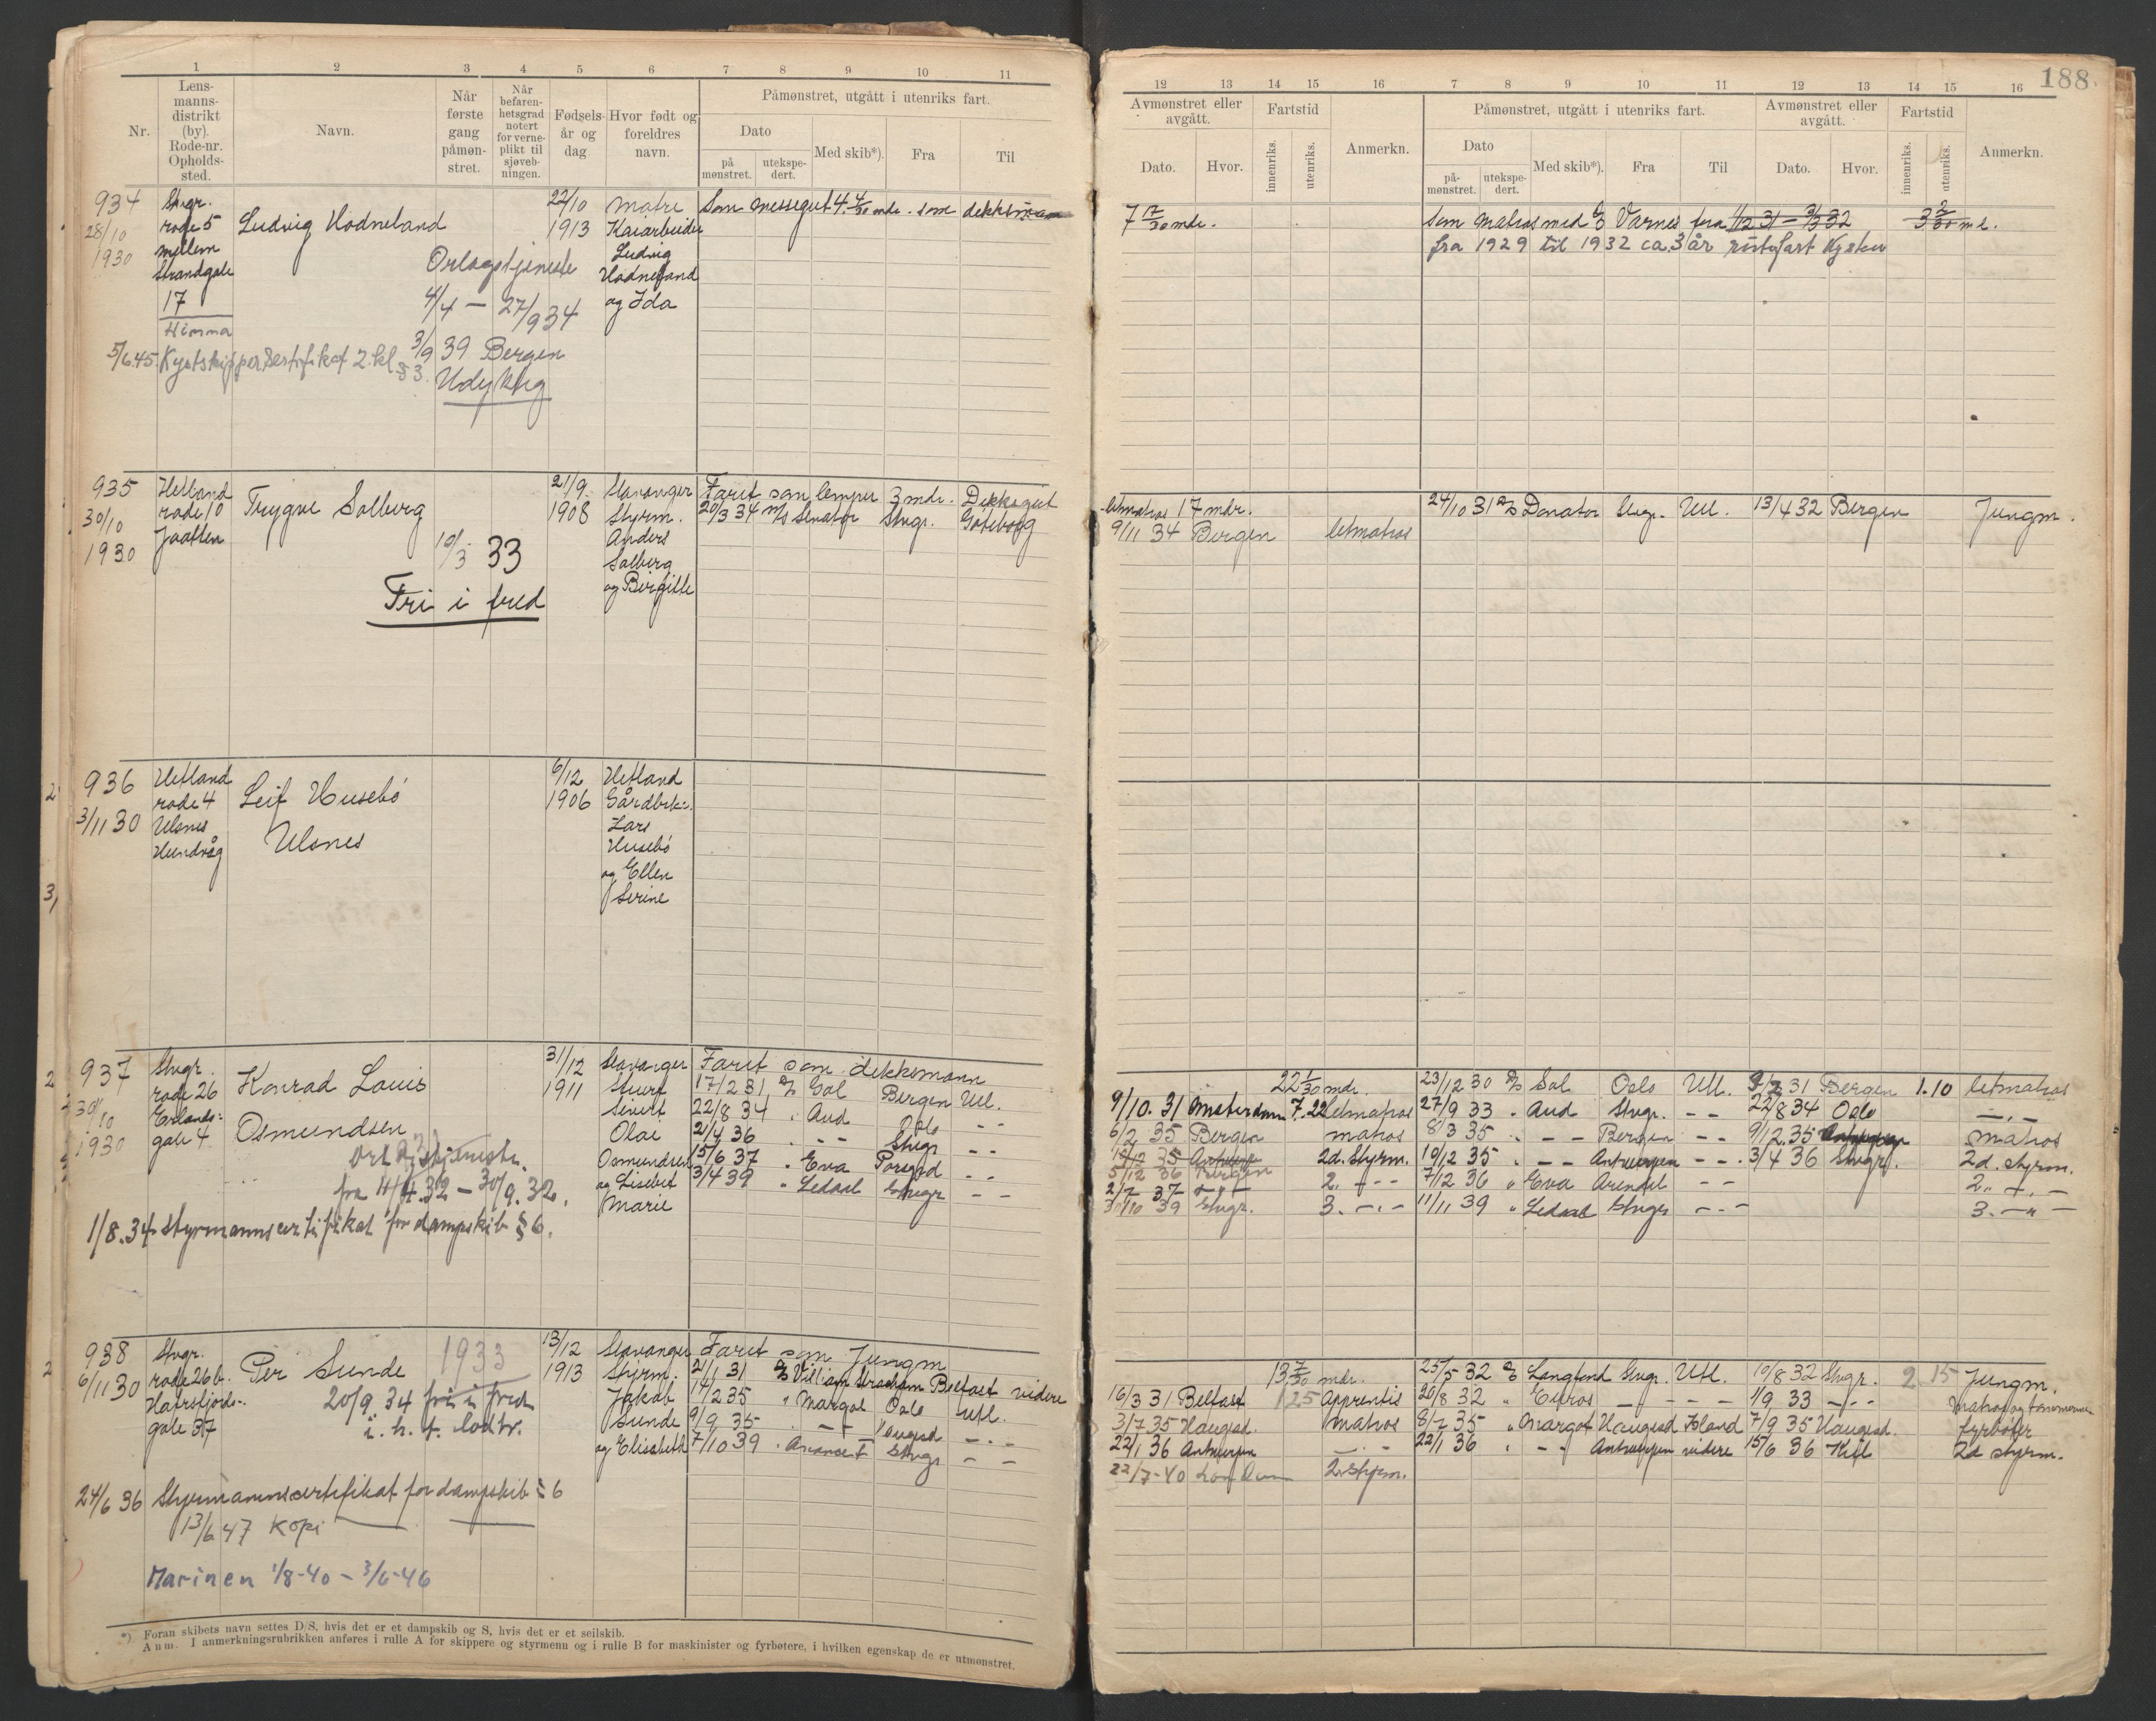 188.
1 2 3 4 5 6 7 8 9 10 11
Nr.
Lens-
manns-
distrikt
(by).
Rode-nr.
Opholds-
sted.
Navn.
Når
første
gang
påmøn-
stret.
Når
befaren-
hetsgrad
notert
for verne-
plikt til
sjøveb-
ningen.
Fødsels-
år og
dag
Hvor født og
foreldres
navn.
Påmønstret, utgått i utenriks fart.
Dato
på
mønstret.
utekspe-
dert.
Med skib*).
Fra
Til
934
28/10
1930
Stvgr.
rode 5
mellem
Strandgate
17
Hinna
Ludvig Hodneland
Orlogstjeneste
4/4 – 27/9 34
3/9 39 Bergen
Udyktig
5/6 45. Kystskippersertifikat 2. kl § 3.
22/10
1913
Matre
Kaiarbeider
Ludvig
Hodneland
og Ida
Som messegut 4. 4/30 mdr. som dekksmann
935
30/10
1930
Hetland
rode 10
Jaatten
Trygve Solberg
10/3 33
Fri i fred
21/9.
1908
Stavanger
Styrm.
Anders
Solberg
og Bergitte
Faret som lemper 3 mdr. Dekksgut
20/3 34 m/s Senator Stvgr. Göteborg
936
3/11 30
Hetland
rode 4
Ulsnes
Hundvåg
Leif Husebö
Ulsnes
6/12
1906
Hetland
Gårdbrk:.
Lars
Husebö
og Ellen
Serine
937
30/10
1930
Stvgr.
rode 26
Erlands:
gate 4
Konrad Louis
Osmundsen
fra 4/4.32 – 30/9.32.
1/8.34 Styrmannscertifikat for dampskib § 6.
31/12
1911
Stavanger
Stuert
Sivert
Olai
Osmundsen
og Lisebet
Marie
Faret som dekksmann
17/2 31 D/S Sol Bergen Utl.
22/8 34 " Aud Oslo – –
2/4 36 " – – Stvgr – –
15/6 37 " Eva Porsgrd – –
3/4 39 " Ledaal Stvgr – –
938
6/11 30
Stvgr.
rode 26b.
Hafrsfjords-
gate 37
Per Sunde
1933
20/9.34 fri i fred
i. h. t. lodtr.
24/6 36 Styrmannscertifikat for dampskib § 6
13/6 47 Kopi
Marinen 1/8-40 – 3/6-46
13/12
1913
Stavanger
Styrm.
Jakob
Sunde
og Elisabeth
Faret som Jungm
2/1 31 D/S William Strachan Belfast videre
14/2 35 " Margot Oslo Utl.
9/9 35 " – – Haugesd – –
7/10 39 " Avance I Stvgr – –
*) Foran skibets navn settes D/S, hvis det er et dampskib og S, hvis det er et seilskib.
Anm. I anmerkningsrubrikken anføres i rulle A for skippere og styrmenn og i rulle B for maskinister og fyrbøtere, i hvilken egenskap de er utmønstret.
12 13 14 15 16 7 8 9 10 11 12 13 14 15 16
Avmønstret eller
avgått.
Dato.
Hvor.
Fartstid
innenriks.
utenriks.
Anmerkn.
Påmønstret, utgått i utenriks fart.
Dato
på-
mønstret.
utekspe-
dert.
Med skib*).
Fra
Til
Avmønstret eller
avgått.
Dato.
Hvor.
Fartstid
innenriks.
utenriks.
Anmerkn.
7 17/30 mdr.
Som matros med D/S Varnes fra 1/12 31 – 3/3 32 3 2/30 md.
fra 1929 til 1932 ca. 3 år
letmatros 17 mdr.
9/11 34 Bergen letmatros
24/10 31 D/S Donator Stvgr. Utl. 13/4 32 Bergen Jungm.
22 1/30 mdr.
9/10.31 Amsterdam 7.22 letmatros
6/2 35 Bergen matros
10/12 35 Antwerpen 2d. Styrm.
5/12 36 Bergen 2. – – –
2/7 37 – – –
30/10 39 Stvgr. 3. – . –
23/12 30 D/S Sol Oslo Utl. 9/2 31 Bergen 1.10 letmatros
27/9 33 " Aud Stvgr. – – 22/8 34 Oslo – " –
8/3 35 " – – Bergen – – 9/12.35 Antwerpen matros
10/12 35 " – – Antwerpen – – 3/4 36 Stvgr. 2d. styrm.
7/12 36 " Eva Arendal – – 2. – . –
11/11 39 " Ledaal Stvgr – . – 3. – " –
13 7/30 mdr.
16/3 31 Belfast 1 25 Apprentis
3/7 35 Haugesd. matros
22/1 36 Antwerpen – . –
22/7-40 London 2. styrm.
25/5 32 D/S Langfond Stvgr. Utl. 10/8 32 Stvgr. 2 15 Jungm.
20/8 32 " Euros – – – – 1/9 33 – . – Matros og tømmermenn
8/7 35 " Margot Haugesd Island 7/9 35 Haugesd. fyrbøter
22/1 36 " – – Antwerpen videre 15/6 36 Kiel 2d styrm.